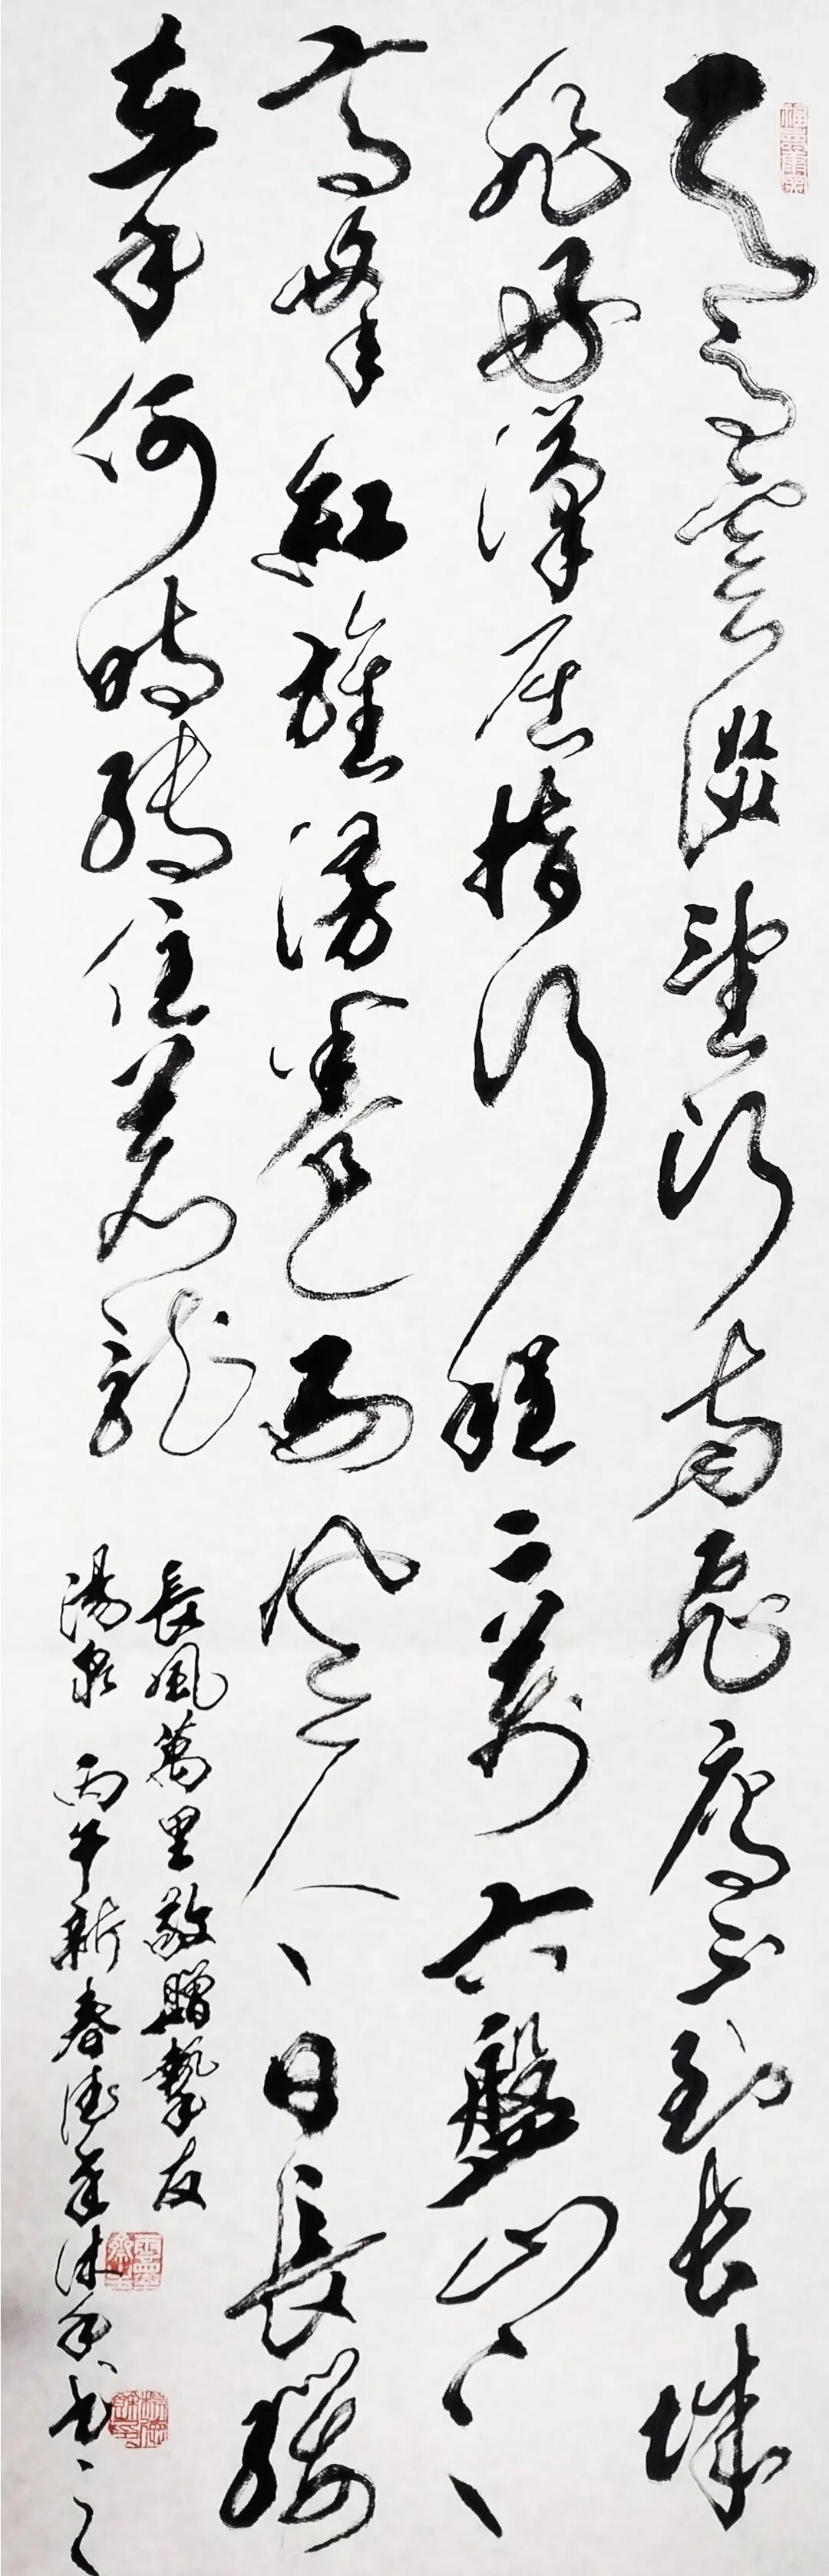 天高雲淡望断南飛雁不到长城
非好漢屈指行程二萬六盤山上
高峰紅旗漫卷西風今日長纓
在手何時縛住蒼龍
長風萬里敬贈摯友
湯泉 丙午新春德沐手书之